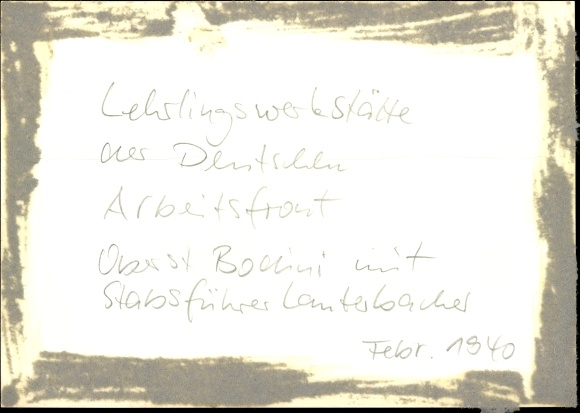 Lehrlingswerkstätte
der Deutschen
Arbeitsfront
Oberst Bodini mit
Stabsführer Lauterbacher
Febr. 1940